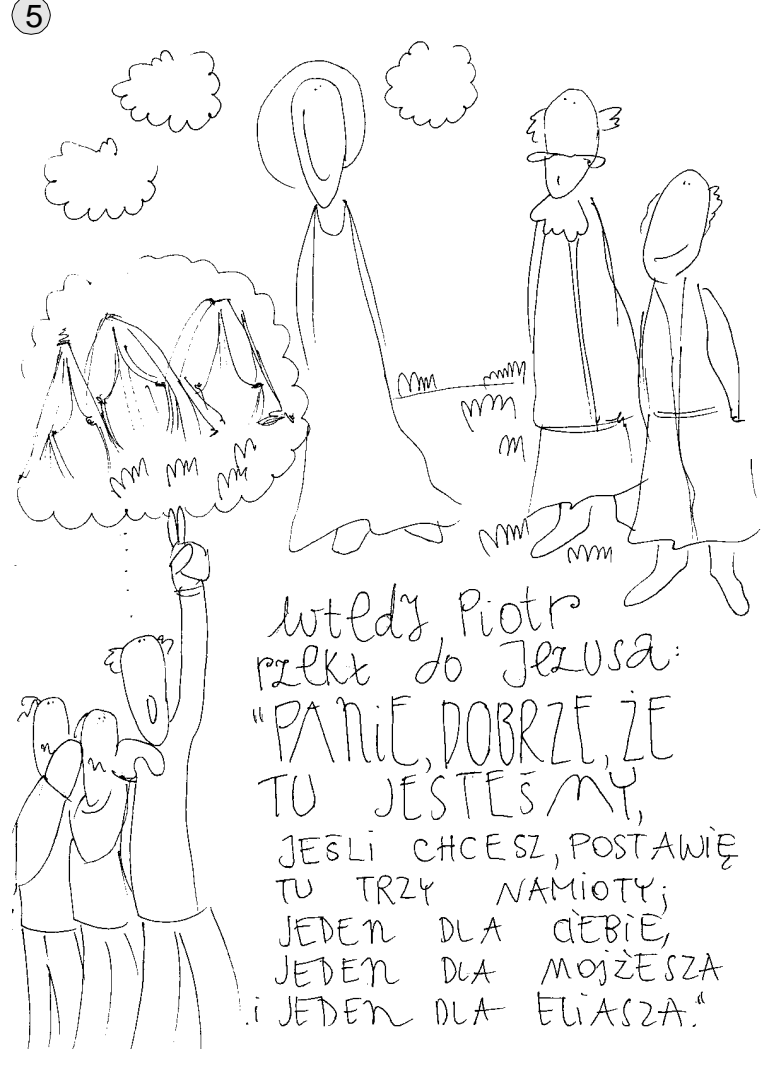 5
wtedy Piotr
rzekł do Jezusa:
"PANIE, DOBRZE, ŻE
TU JESTEŚMY,
JEŚLI CHCESZ, POSTAWIĘ
TU TRZY NAMIOTY;
JEDEN DLA CIEBIE,
JEDEN DLA MOJŻESZA
i JEDEN DLA ELIASZA."